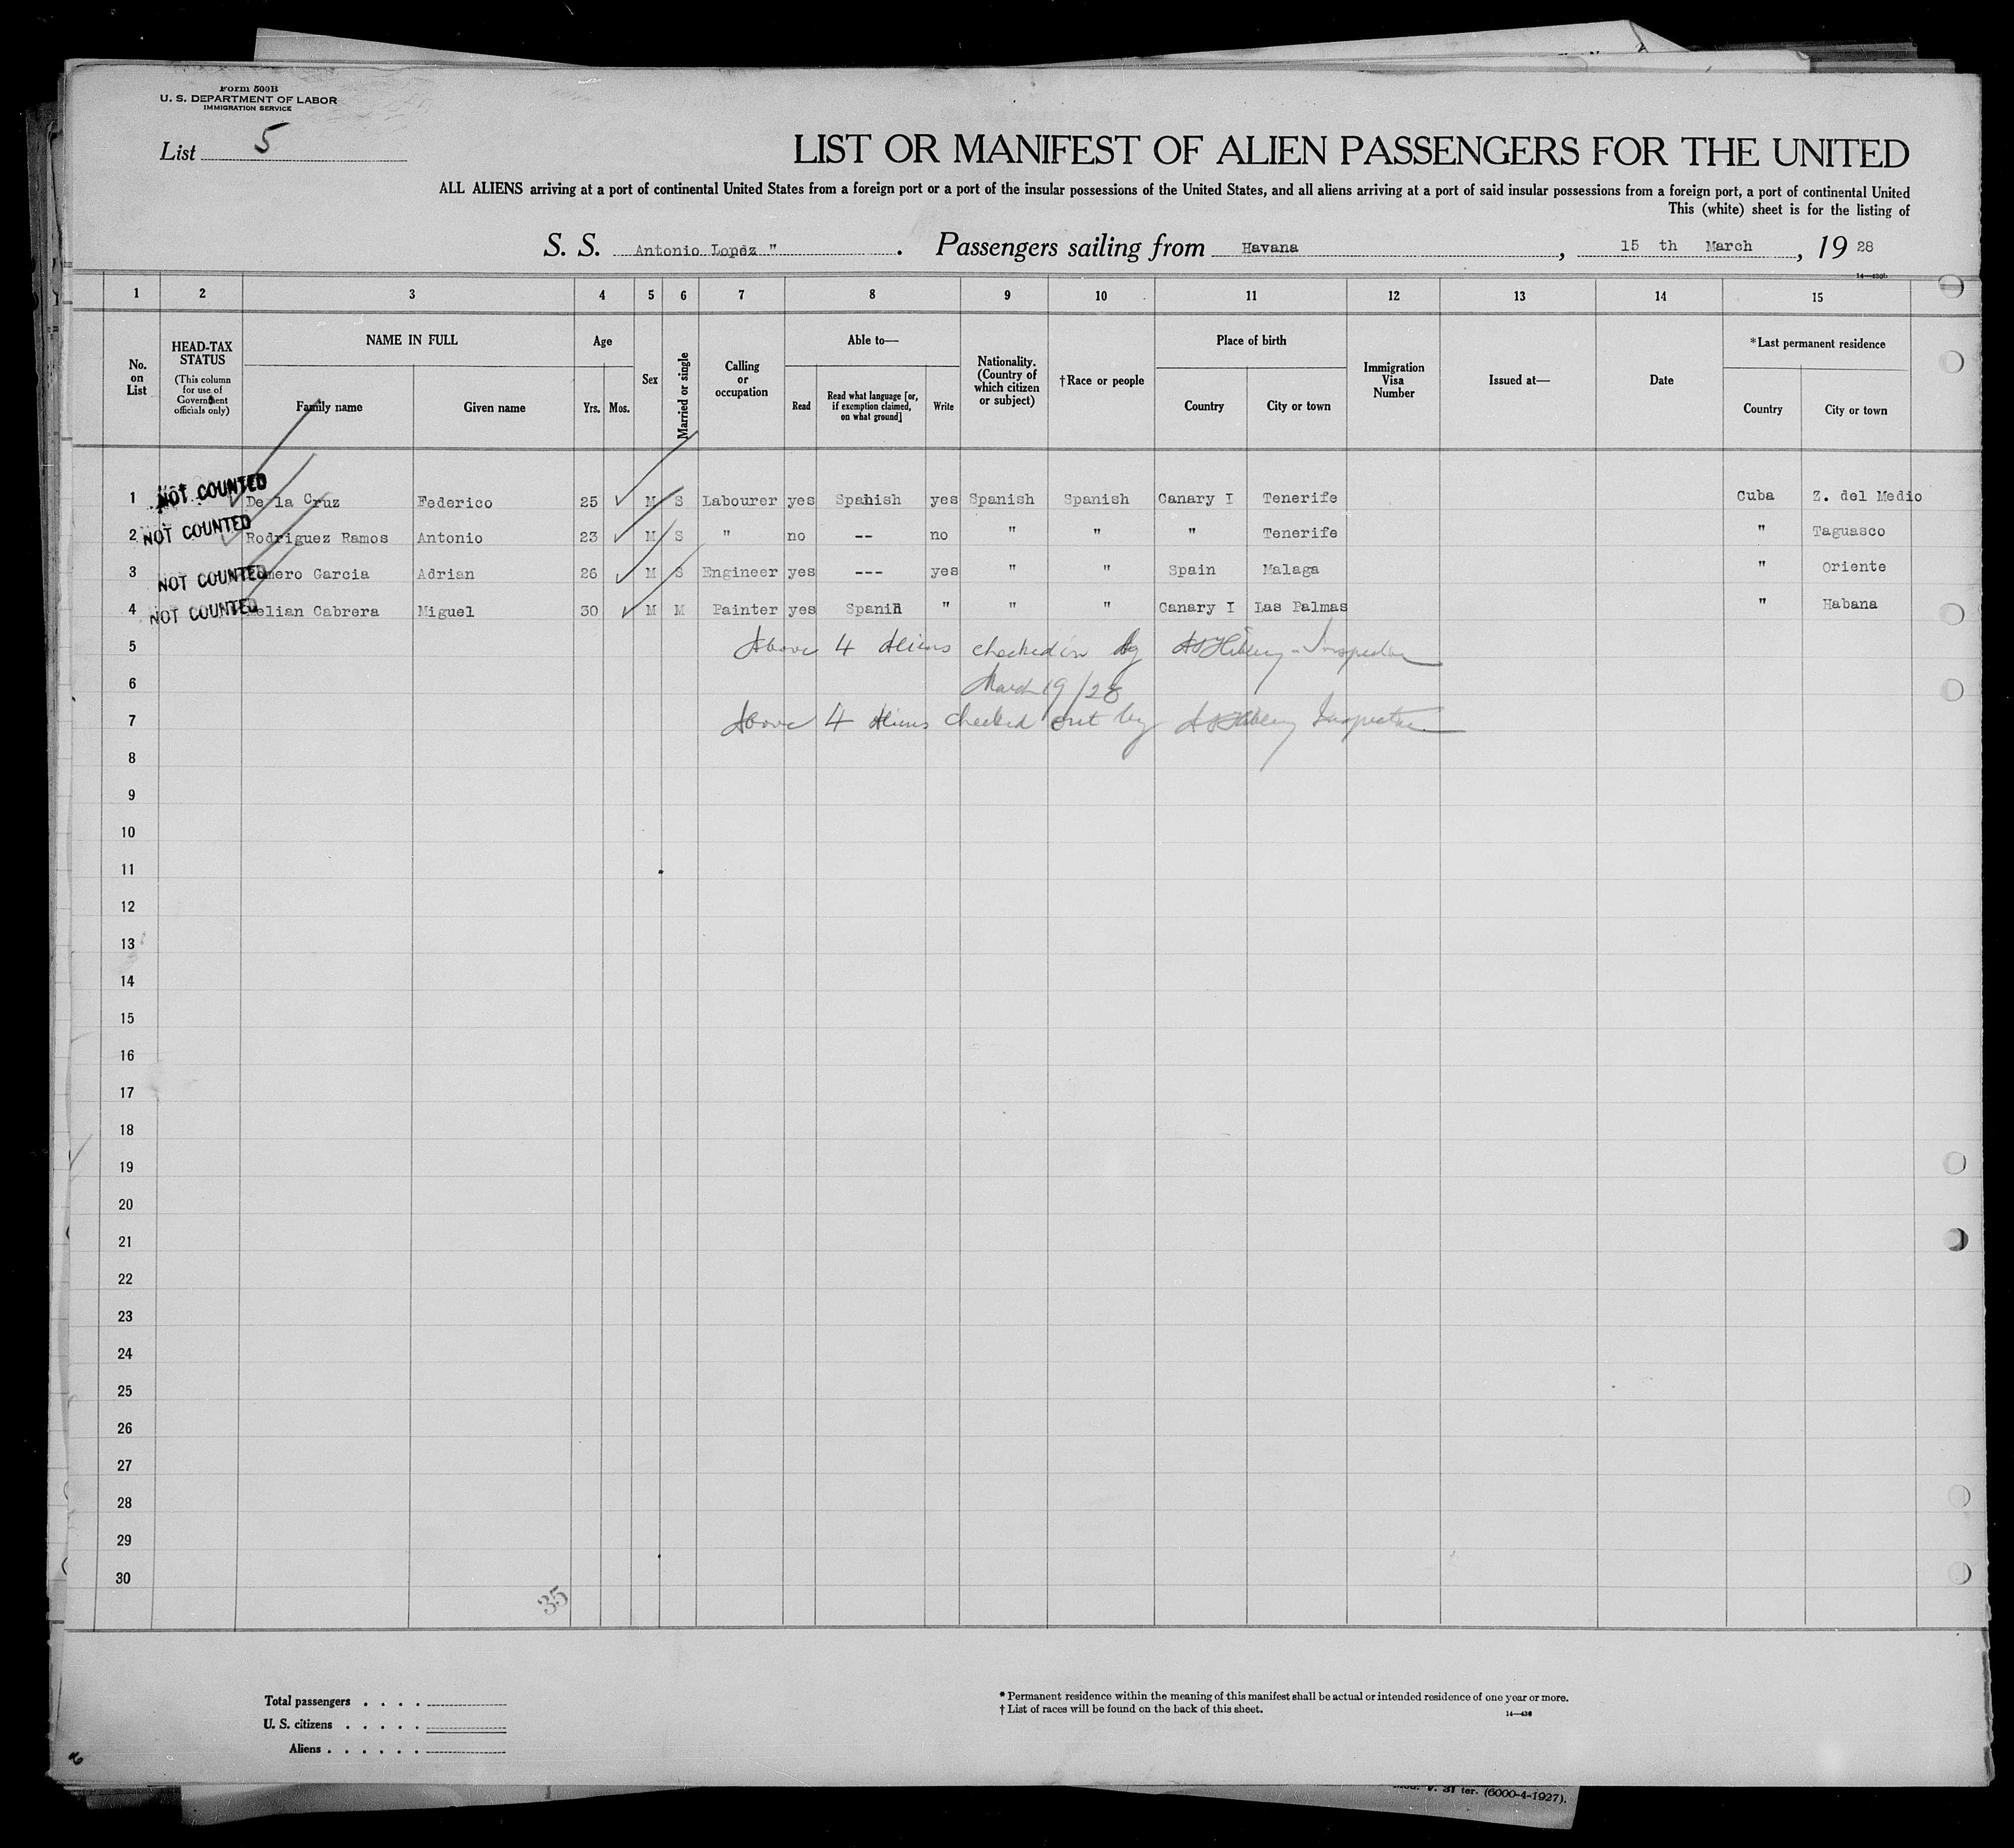 Form 500B
U. S. DEPARTMENT OF LABOR
IMMIGRATION SERVICE
List 5
LIST OR MANIFEST OF ALIEN PASSENGERS FOR THE UNITED
ALL ALIENS arriving at a port of continental United States from a foreign port or a port of the insular possessions of the United States, and all aliens arriving at a port of said insular possessions from a foreign port, a port of continental United
This (white) sheet is for the listing of
S. S. Antonio Lopez ". Passengers sailing from Havana, 15 th March, 19 28
1 2 3 4 5 6 7 8 9 10 11 12 13 14 15
No. on List
HEAD-TAX STATUS (This column for use of Government officials only)
NAME IN FULL
Family name Given name
Age
Yrs. Mos.
Sex
Married or single
Calling or occupation
Able to—
Read Read what language [or, if exemption claimed, on what ground] Write
Nationality. (Country of which citizen or subject)
†Race or people
Place of birth
Country City or town
Immigration Visa Number
Issued at—
Date
*Last permanent residence
Country City or town
1 NOT COUNTED De la Cruz Federico 25 M S Labourer yes Spanish yes Spanish Spanish Canary I Tenerife Cuba Z. del Medio
2 NOT COUNTED Rodriguez Ramos Antonio 23 M S " no -- no " " " Tenerife " Taguasco
3 NOT COUNTED Garcia Adrian 26 M S Engineer yes --- yes " " Spain Malaga " Oriente
4 NOT COUNTED Cabrera Miguel 30 M M Painter yes Spanih " " " Canary I Las Palmas " Habana
5 Above 4 Aliens checked in by Inspector
6 March 19/28
7 Above 4 Aliens checked out by Inspector
8
9
10
11
12
13
14
15
16
17
18
19
20
21
22
23
24
25
26
27
28
29
30
35
Total passengers . . . .
U. S. citizens . . . . .
Aliens . . . . . .
* Permanent residence within the meaning of this manifest shall be actual or intended residence of one year or more.
† List of races will be found on the back of this sheet.
ter. (6000-4-1927).